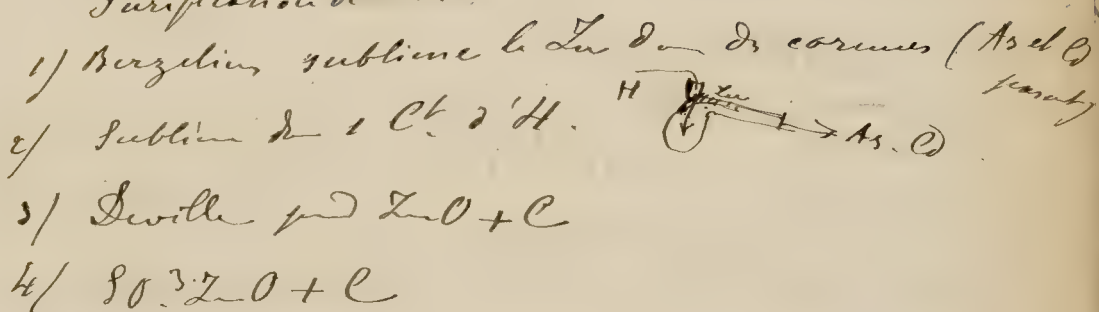 Purification d
1/ Berzelius sublime le Zn dans ds cornues (As et Cd passent)
2/ Sublime dans 1 Ct. d'H. H Zn As. Cd
3/ Deville prend ZnO + C
4/ SO³.ZnO + C